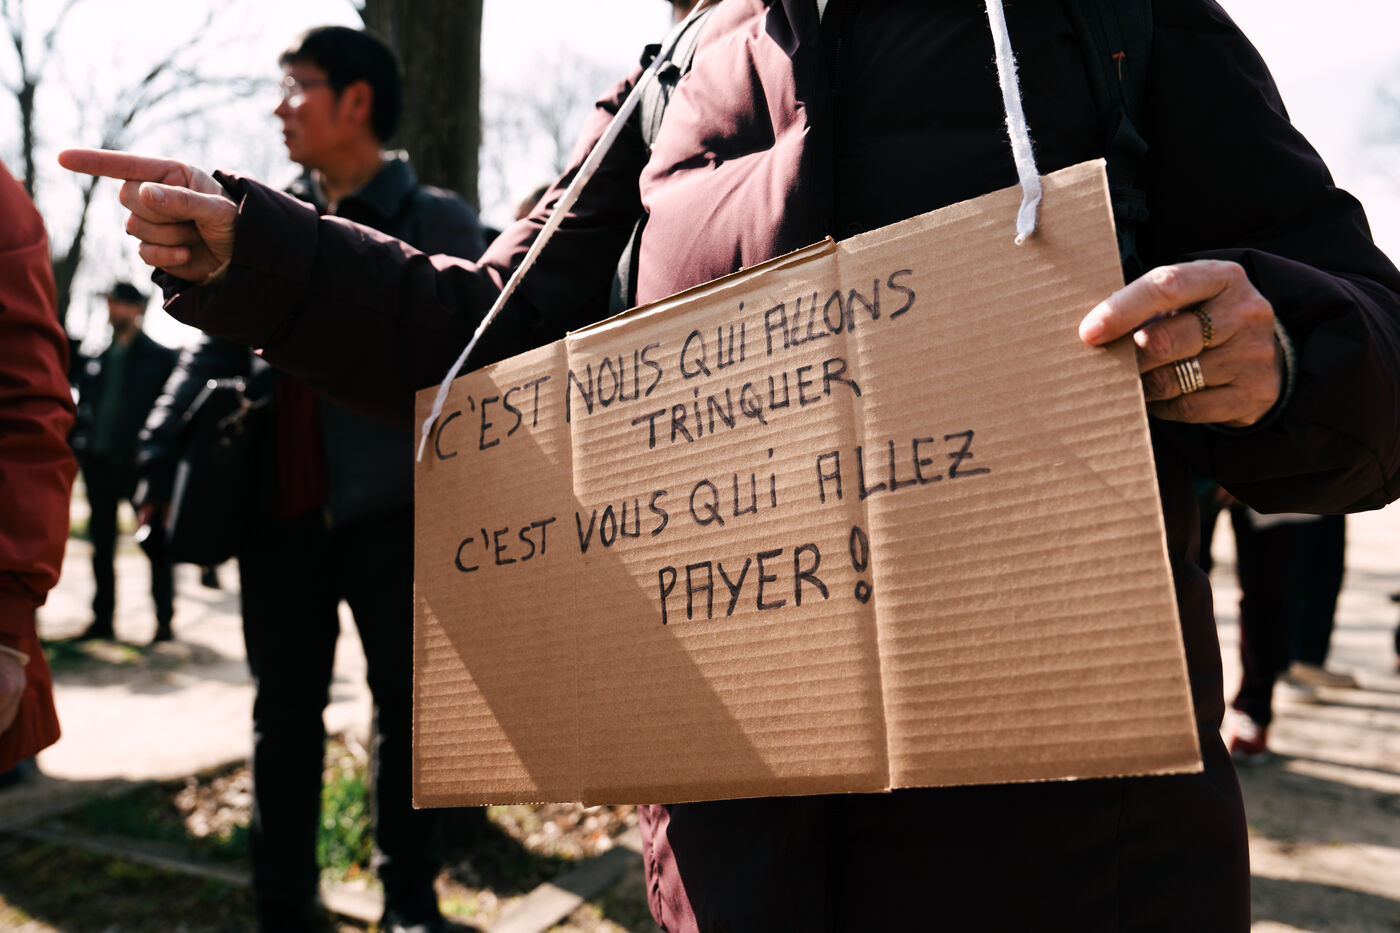 C'EST NOUS QUi ALLONS
TRiNQUER
C'EST VOUS QUi ALLEZ
PAYER !